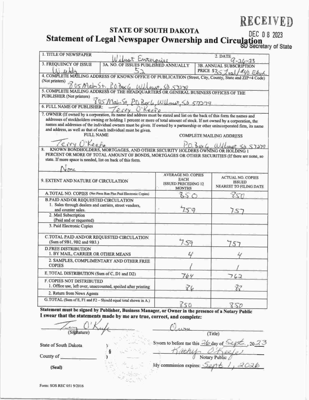 RECEIVED
DEC 08 2023
SD Secretary of State
STATE OF SOUTH DAKOTA
Statement of Legal Newspaper Ownership and Circulation
1. TITLE OF NEWSPAPER
Wilmot Enterprise
2. DATE
9-26-23
3. FREQUENCY OF ISSUE
Weekly
3A. NO. OF ISSUES PUBLISHED ANNUALLY
52
3B. ANNUAL SUBSCRIPTION
PRICE
4. COMPLETE MAILING ADDRESS OF KNOWN OFFICE OF PUBLICATION (Street, City, County, State and ZIP+4 Code)
(Not printers)
805 Main St, PO Box 6, Wilmot, SD 57279
5. COMPLETE MAILING ADDRESS OF THE HEADQUARTERS OR GENERAL BUSINESS OFFICES OF THE
PUBLISHER (Not printer)
805 Main St, PO Box 6, Wilmot, SD 57279
6. FULL NAME OF PUBLISHER:
Terry O'Keefe
7. OWNER (If owned by a corporation, its name and address must be stated and list on the back of this form the names and
addresses of stockholders owning or holding 1 percent or more of total amount of stock. If not owned by a corporation, the
names and addresses of the individual owners must be given. If owned by a partnership or other unincorporated firm, its name
and address, as well as that of each individual must be given.
FULL NAME
COMPLETE MAILING ADDRESS
Terry O'Keefe
PO Box 6, Wilmot, SD 57279
8. KNOWN BONDHOLDERS, MORTGAGES, AND OTHER SECURITY HOLDERS OWNING OR HOLDING 1
PERCENT OR MORE OF TOTAL AMOUNT OF BONDS, MORTGAGES OR OTHER SECURITIES (If there are none, so
state. If more space is needed, list on back of this form.
None
9. EXTENT AND NATURE OF CIRCULATION
AVERAGE NO. COPIES
EACH
ISSUED PRECEDING 12
MONTHS
ACTUAL NO. COPIES
ISSUED
NEAREST TO FILING DATE
A. TOTAL NO. COPIES (Net Press Run Plus Paid Electronic Copies)
850
850
B. PAID AND/OR REQUESTED CIRCULATION
1. Sales through dealers and carriers, street vendors,
and counter sales.
2. Mail Subscription
(Paid and or requested)
759
757
3. Paid Electronic Copies
C. TOTAL PAID AND/OR REQUESTED CIRCULATION
(Sum of 9B1, 9B2 and 9B3.)
759
757
D. FREE DISTRIBUTION
1. BY MAIL, CARRIER OR OTHER MEANS
4
4
2. SAMPLES, COMPLIMENTARY AND OTHER FREE
COPIES
E. TOTAL DISTRIBUTION (Sum of C, D1 and D2)
764
762
F. COPIES NOT DISTRIBUTED
1. Office use, left over, unaccounted, spoiled after printing
86
88
2. Return from News Agents
G. TOTAL (Sum of E, F1 and F2 - Should equal total shown in A.)
850
850
Statement must be signed by Publisher, Business Manager, or Owner in the presence of a Notary Public
I swear that the statements made by me are true, correct, and complete:
Terry O'Keefe
(Signature)
Owner
(Title)
State of South Dakota )
County of )
(Seal)
Sworn to before me this 26 day of Sept, 2023
Notary Public
My commission expires Sept 1, 2026